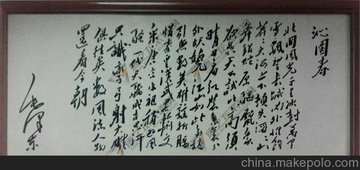 沁园春
北国风光千里冰封万里
雪飘望长城内外惟余莽
莽大河上下顿失滔滔山
舞银蛇原驰腊象
欲与天公试比高须
晴日看红装素裹
分外妖娆江山如此多娇
引无数英雄竞折腰
惜秦皇汉武略输文
采唐宗宋祖稍逊风
骚一代天骄成吉思汗
只识弯弓射大雕
俱往矣数风流人物
还看今朝
毛泽东
china.makepolo.com